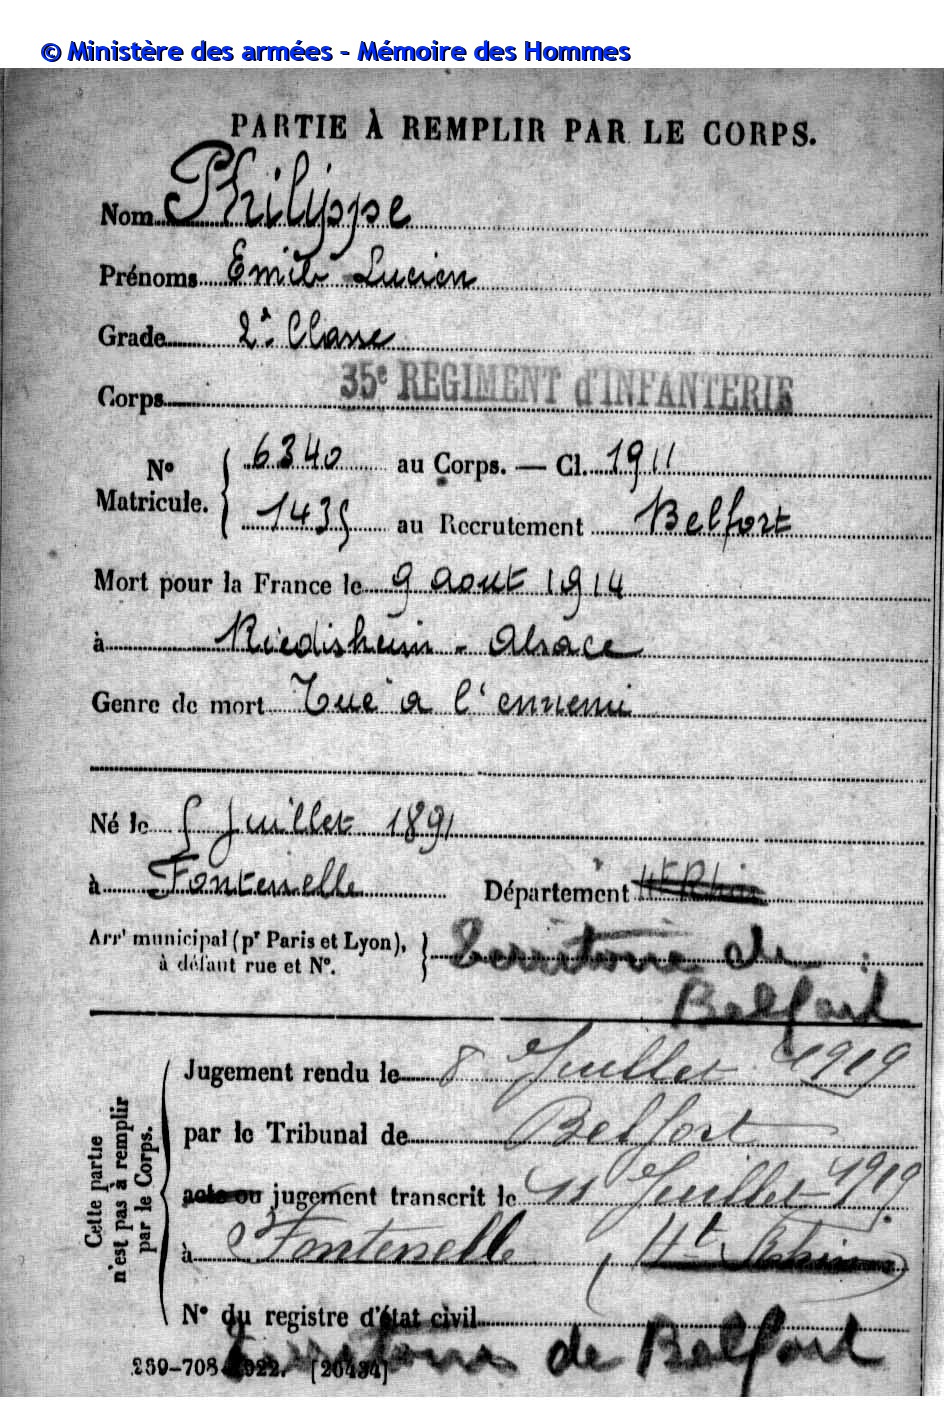 © Ministère des armées - Mémoire des Hommes
PARTIE À REMPLIR PAR LE CORPS.
Nom Philippe
Prénoms Emile Lucien
Grade 2e Classe
Corps 35e REGIMENT d'INFANTERIE
No Matricule. 6340 au Corps. — Cl. 1911
1435 au Recrutement Belfort
Mort pour la France le 9 Aout 1914
à Riedisheim - Alsace
Genre de mort Tué a l'ennemi
Né le 5 Juillet 1891
à Fontenelle Département Ht Rhin
Arrt municipal (pr Paris et Lyon), à défaut rue et No. Territoire de
Belfort
Cette partie n'est pas à remplir par le Corps.
Jugement rendu le 8 Juillet 1919
par le Tribunal de Belfort
acte ou jugement transcrit le 11 Juillet 1919
à Fontenelle (Ht Rhin)
No du registre d'état civil
Territoire de Belfort
259-708-1922. [26434]